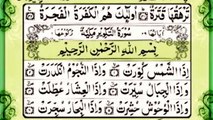 تَرْهَقُهَا قَتَرَةٌ ۝ أُولَٰئِكَ هُمُ الْكَفَرَةُ الْفَجَرَةُ ۝
سُورَةُ التَّكْوِيرِ مَكِّيَّةٌ
بِسْمِ اللَّهِ الرَّحْمَٰنِ الرَّحِيمِ
إِذَا الشَّمْسُ كُوِّرَتْ ۝ وَإِذَا النُّجُومُ انْكَدَرَتْ ۝
وَإِذَا الْجِبَالُ سُيِّرَتْ ۝ وَإِذَا الْعِشَارُ عُطِّلَتْ ۝
وَإِذَا الْوُحُوشُ حُشِرَتْ ۝ وَإِذَا الْبِحَارُ سُجِّرَتْ ۝